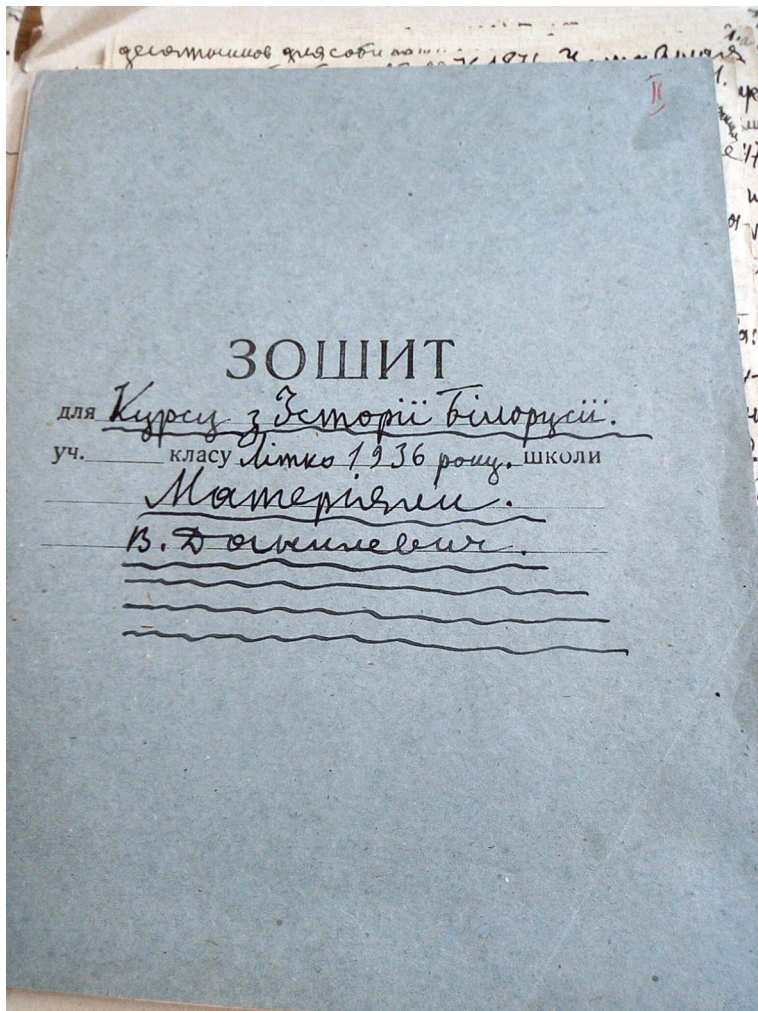 десятников для
II
ЗОШИТ
для Курсу з Історії Білорусії.
уч. класу Літко 1936 року. школи
Матеріяли.
В. Данилевич.